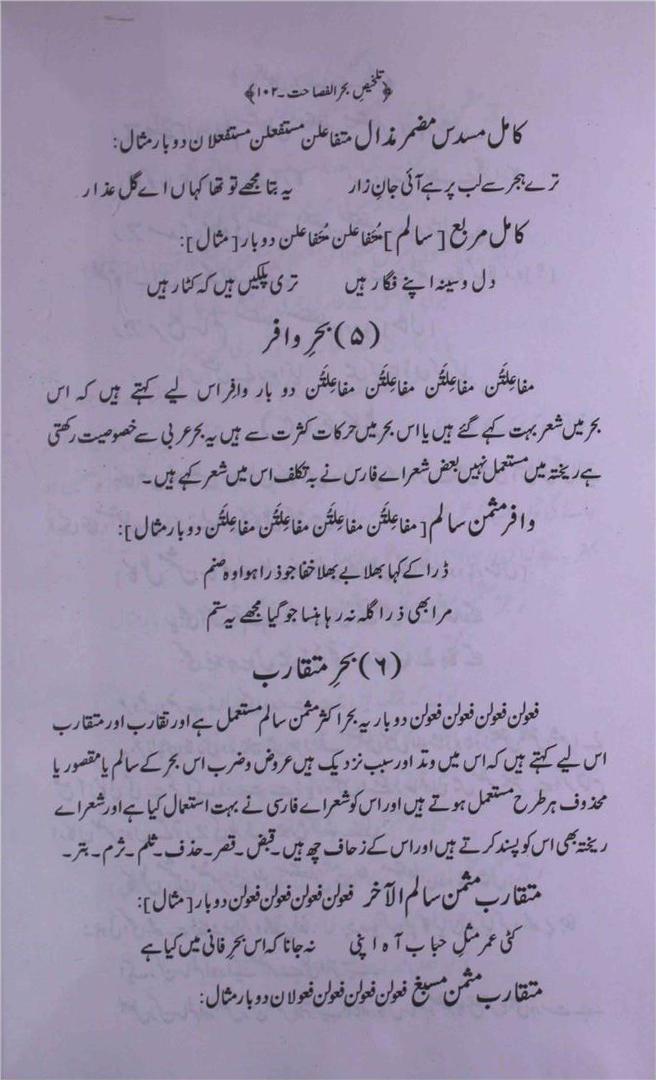 ﴿تلخیصِ بحر الفصاحت۔۱۰۲﴾
کامل مسدس مضمر مذال متفاعلن مستفعلن مستفعلان دوبار مثال:
ترے ہجر سے لب پر ہے آئی جانِ زار یہ بتا مجھے تو تھا کہاں اے گل عذار
کامل مربع [سالم] مُتَفاعلن مُتَفاعلن دوبار [مثال]:
دل و سینہ اپنے فگار ہیں تری پلکیں ہیں کہ کٹار ہیں
(۵) بحرِ وافر
مفاعِلَتُن مفاعِلَتُن مفاعِلَتُن مفاعِلَتُن دو بار وافر اس لیے کہتے ہیں کہ اس
بحر میں شعر بہت کہے گئے ہیں یا اس بحر میں حرکات کثرت سے ہیں یہ بحر عربی سے خصوصیت رکھتی
ہے ریختہ میں مستعمل نہیں بعض شعراے فارس نے بہ تکلف اس میں شعر کہے ہیں۔
وافر مثمن سالم [مفاعِلَتُن مفاعِلَتُن مفاعِلَتُن مفاعِلَتُن دوبار مثال]:
ڈرا کے کہا بھلا بے بھلا خفا جو ذرا ہوا وہ صنم
مرا بھی ذرا گلہ نہ رہا ہنسا جو گیا مجھے یہ ستم
(۶) بحرِ متقارب
فعولن فعولن فعولن فعولن دوبار یہ بحر اکثر مثمن سالم مستعمل ہے اور تقارب اور متقارب
اس لیے کہتے ہیں کہ اس میں وتد اور سبب نزدیک ہیں عروض و ضرب اس بحر کے سالم یا مقصور یا
محذوف ہر طرح مستعمل ہوتے ہیں اور اس کو شعراے فارسی نے بہت استعمال کیا ہے اور شعراے
ریختہ بھی اس کو پسند کرتے ہیں اور اس کے زحاف چھ ہیں۔ قبض۔ قصر۔ حذف۔ ثلم۔ ثرم۔ بتر۔
متقارب مثمن سالم الآخر فعولن فعولن فعولن فعولن دوبار [مثال]:
کٹی عمر مثلِ حباب آہ اپنی نہ جانا کہ اس بحرِ فانی میں کیا ہے
متقارب مثمن مسبغ فعولن فعولن فعولن فعولان دوبار مثال: